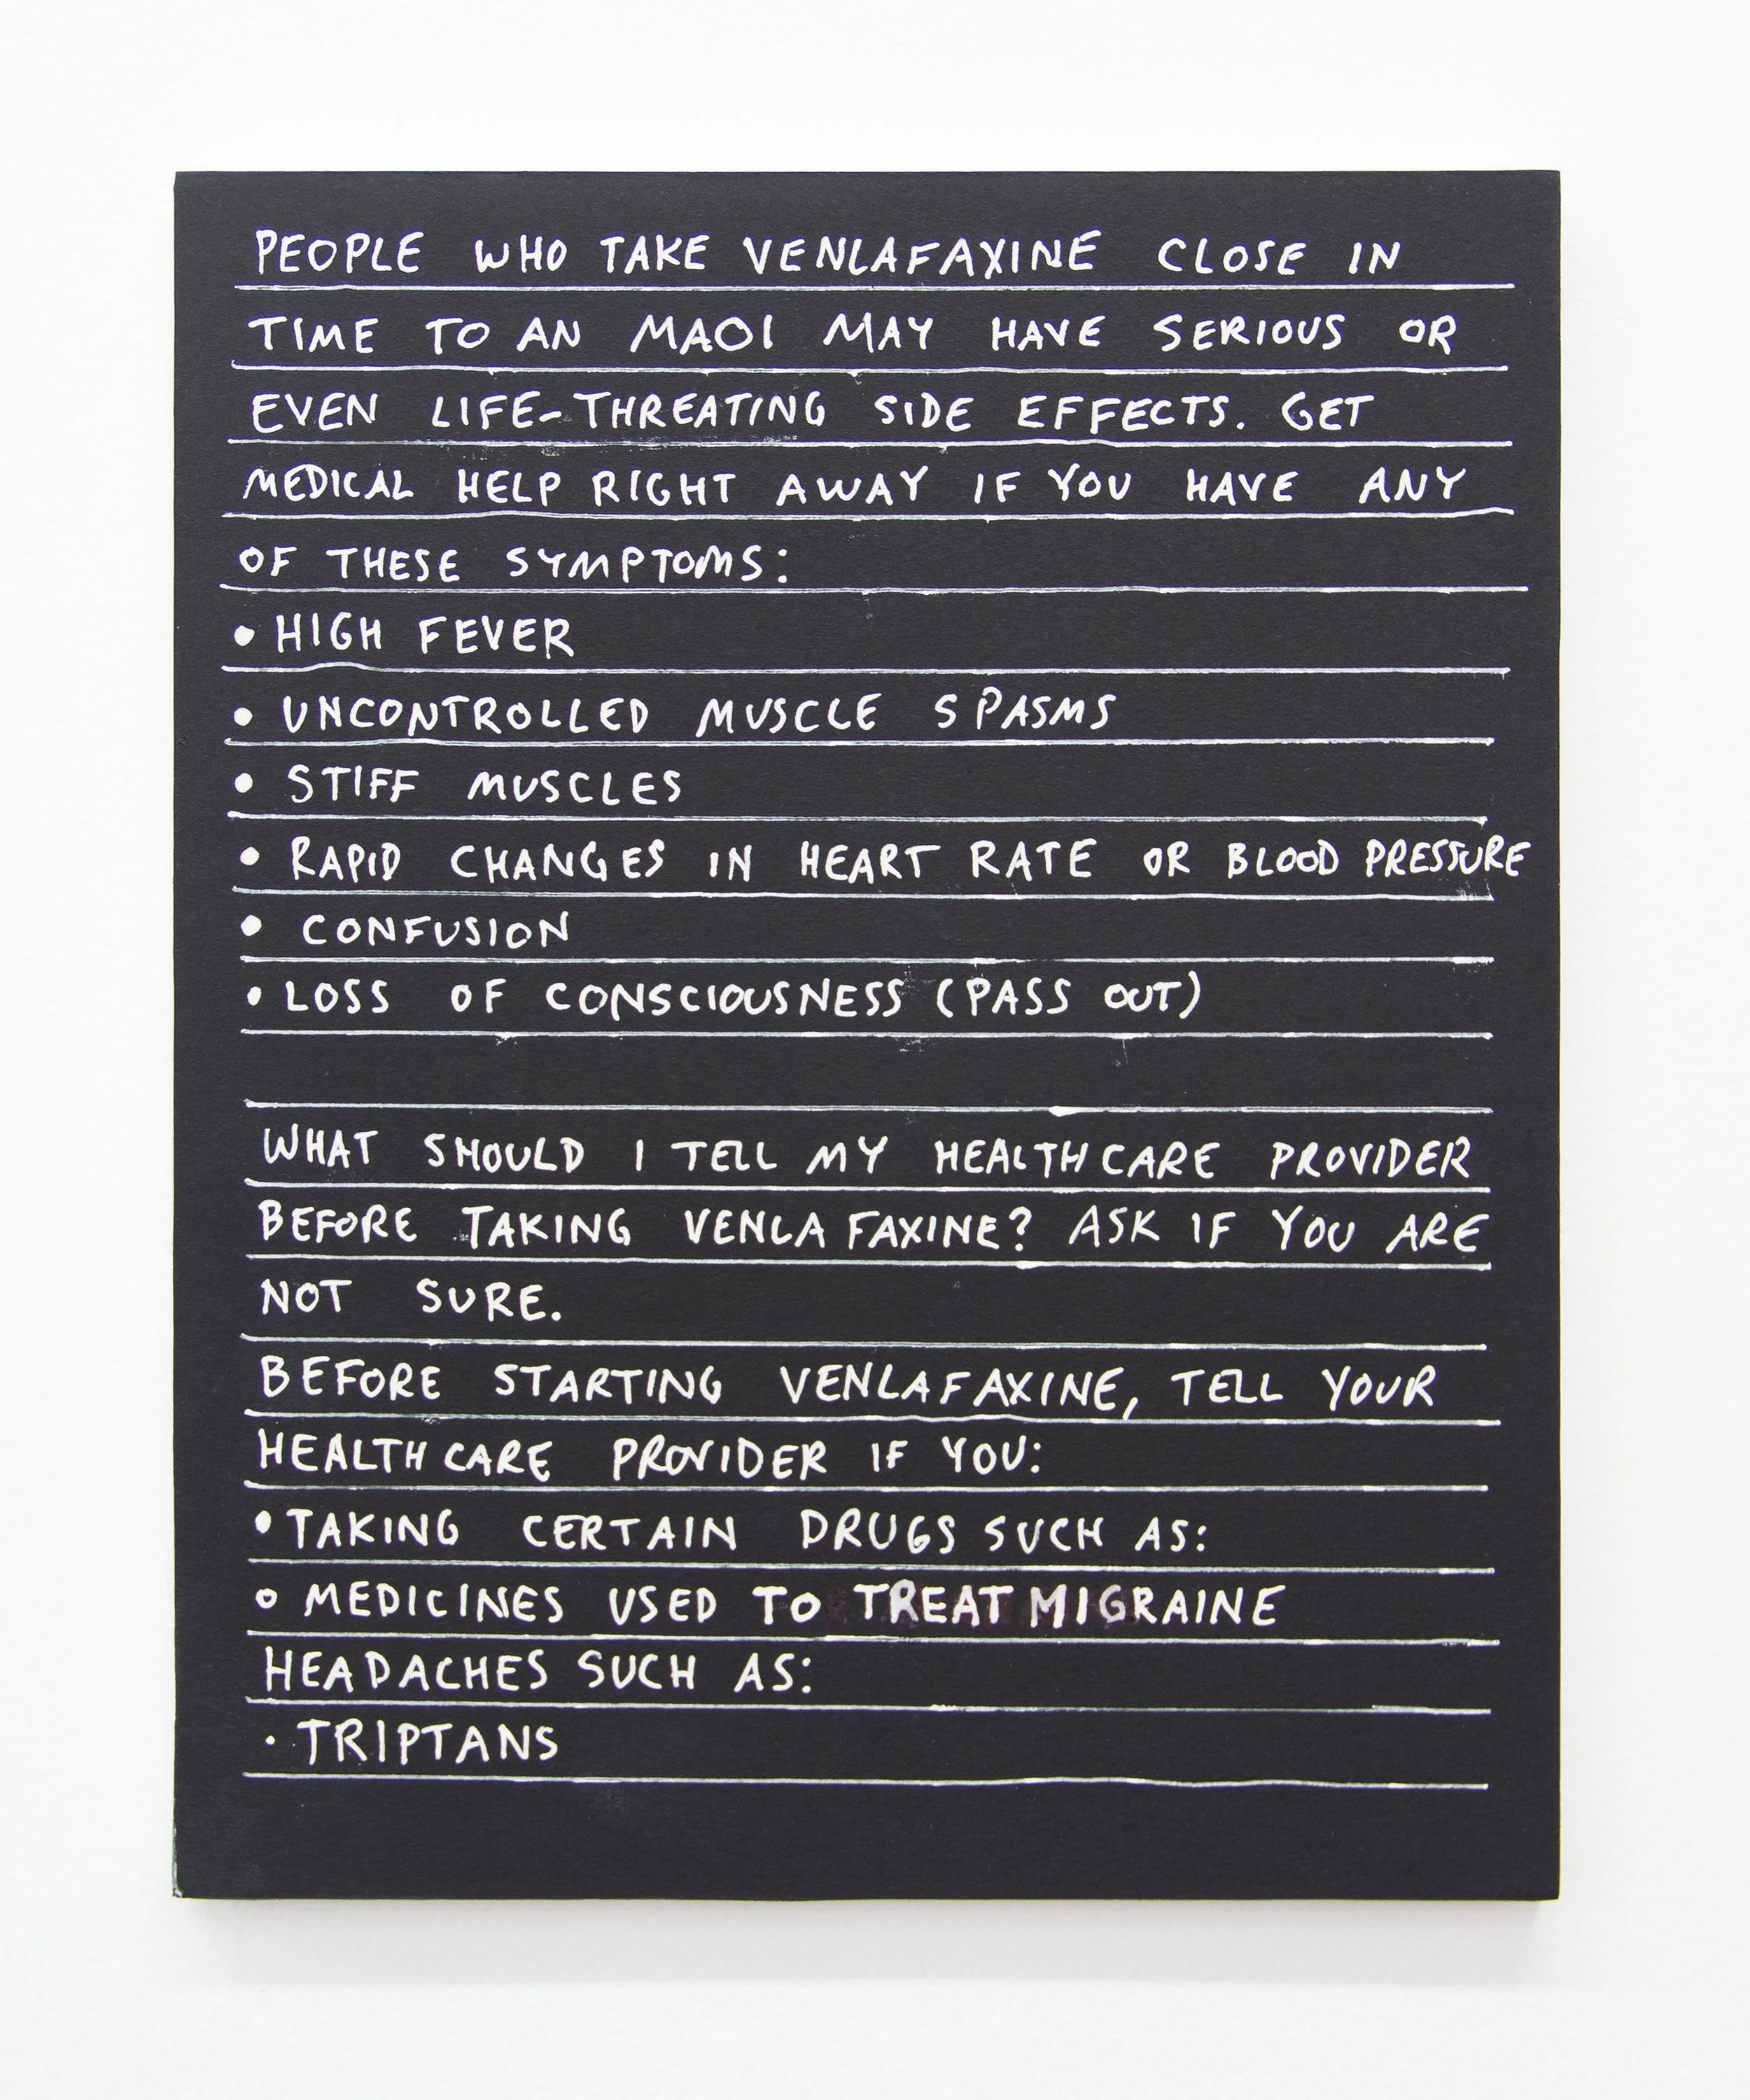 PEOPLE WHO TAKE VENLAFAXINE CLOSE IN
TIME TO AN MAOI MAY HAVE SERIOUS OR
EVEN LIFE-THREATING SIDE EFFECTS. GET
MEDICAL HELP RIGHT AWAY IF YOU HAVE ANY
OF THESE SYMPTOMS:
• HIGH FEVER
• UNCONTROLLED MUSCLE SPASMS
• STIFF MUSCLES
• RAPID CHANGES IN HEART RATE OR BLOOD PRESSURE
• CONFUSION
• LOSS OF CONSCIOUSNESS (PASS OUT)
WHAT SHOULD I TELL MY HEALTHCARE PROVIDER
BEFORE TAKING VENLAFAXINE? ASK IF YOU ARE
NOT SURE.
BEFORE STARTING VENLAFAXINE, TELL YOUR
HEALTHCARE PROVIDER IF YOU:
• TAKING CERTAIN DRUGS SUCH AS:
o MEDICINES USED TO TREAT MIGRAINE
HEADACHES SUCH AS:
· TRIPTANS